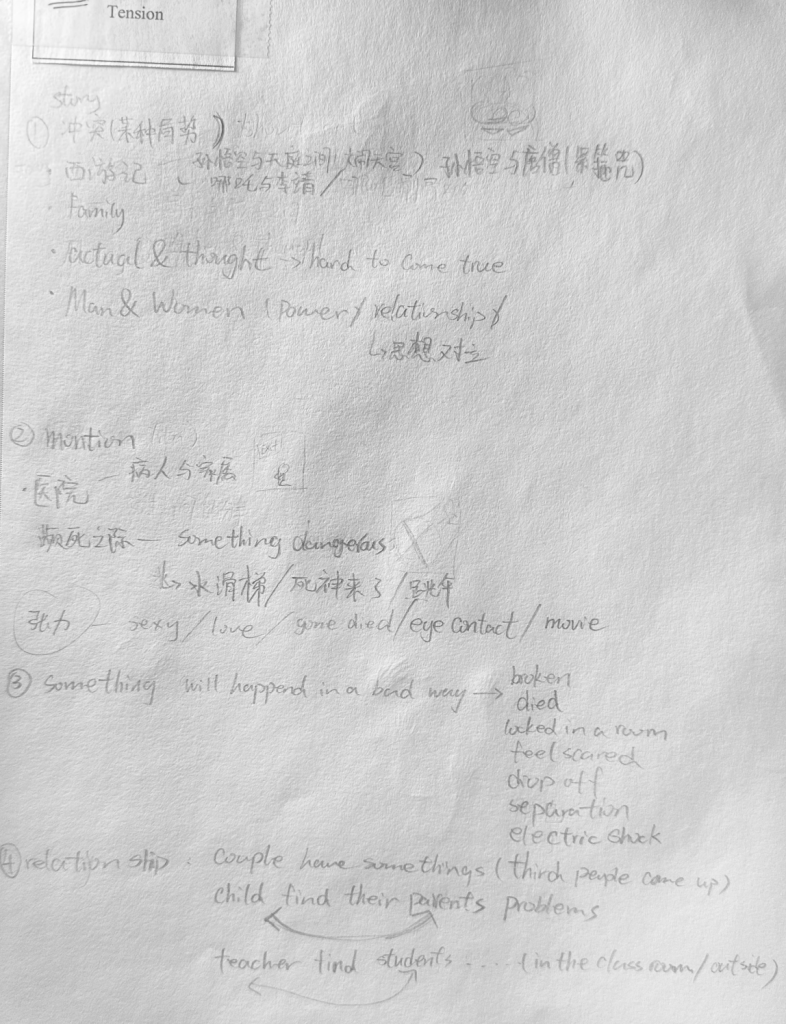 Tension
story
① 冲突(某种局势)
· 西游记 孙悟空与天庭之间(大闹天宫) 孙悟空与唐僧(紧箍咒)
哪吒与李靖/
· Family
· factual & thought → hard to come true
· Man & Women (Power)/relationship)/
↳思想对立
② montion
· 医院 — 病人与家属
濒死之际 — something dangerous
↳水滑梯/死神来了/跳伞
张力 — sexy/love/gone died/eye contact/movie
③ something will happend in a bad way → broken
died
locked in a room
feel scared
drop off
separation
electric shock
④ relation ship : couple have somethings (third people come up)
child find their parents problems
teacher find students .... (in the class room/outside)